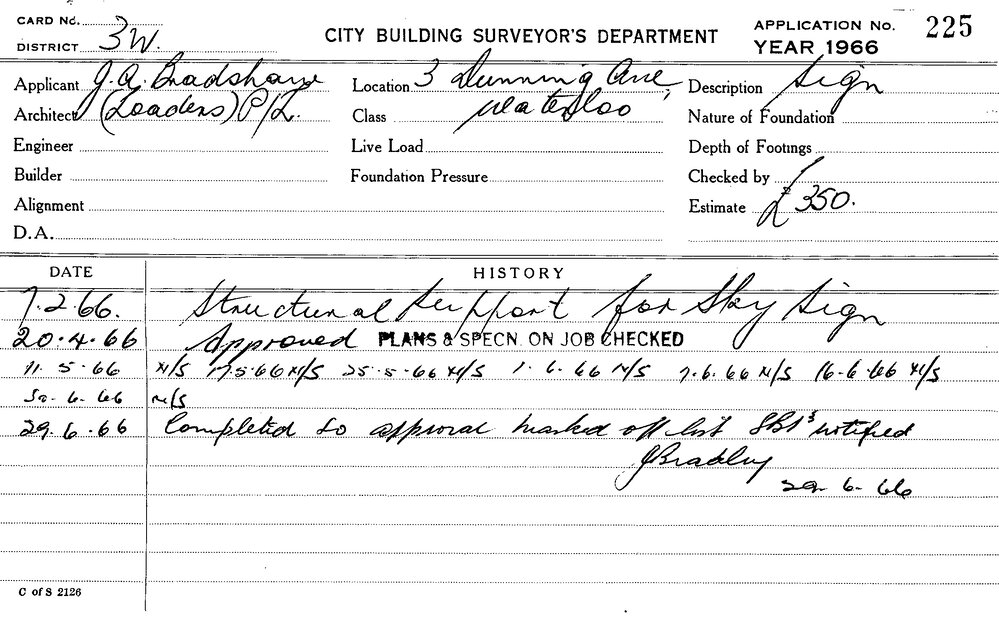 CARD No.
DISTRICT 3W.
CITY BUILDING SURVEYOR'S DEPARTMENT
APPLICATION No. 225
YEAR 1966
Applicant J.A. Bradshaw
Location 3 Dunning Ave,
Description Sign
Architect (Loaders) P/L.
Class Waterloo
Nature of Foundation
Engineer
Live Load
Depth of Footings
Builder
Foundation Pressure
Checked by
Alignment
Estimate £350.
D.A.
DATE HISTORY
7.2.66. Structural Support for Sky Sign
20.4.66 Approved PLANS & SPECN. ON JOB CHECKED
11.5.66 N/S 17.5.66 N/S 25.5.66 N/S 1.6.66 N/S 7.6.66 N/S 16.6.66 N/S
6.66 N/S
29.6.66 Completed to approval marked off list notified
JBradley
29.6.66
C of S 2126